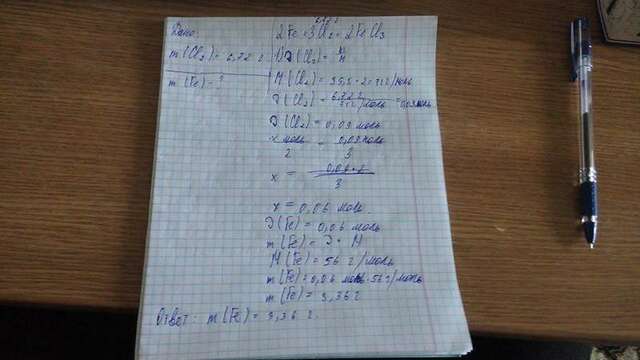 Дано:
m(Cl₂) = 6,72 г
m(Fe) - ?
6,72 г
2Fe + 3Cl₂ = 2FeCl₃
1) ν(Cl₂) = m/M
M(Cl₂) = 35,5 · 2 = 71 г/моль
ν(Cl₂) = 6,72 г / 71 г/моль = 0,09 моль
ν(Cl₂) = 0,09 моль
x моль / 2 = 0,09 моль / 3
x = 0,09 · 2 / 3
x = 0,06 моль
ν(Fe) = 0,06 моль
m(Fe) = ν · M
M(Fe) = 56 г/моль
m(Fe) = 0,06 моль · 56 г/моль
m(Fe) = 3,36 г
Ответ: m(Fe) = 3,36 г.